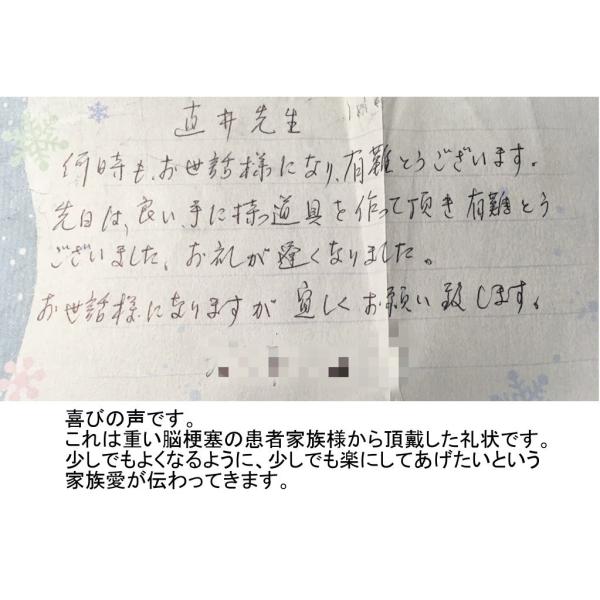 直井先生
何時も、お世話様になり、有難とうございます。
先日は、良い、手に持つ道具を作って頂き有難とう
ございました、お礼が遅くなりました。
お世話様になりますが宜しくお願い致します。
喜びの声です。
これは重い脳梗塞の患者家族様から頂戴した礼状です。
少しでもよくなるように、少しでも楽にしてあげたいという
家族愛が伝わってきます。